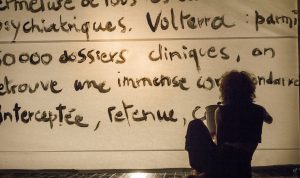 psychiatriques. Volterra : parmi
60000 dossiers cliniques, on
retrouve une immense correspondance
interceptée, retenue,